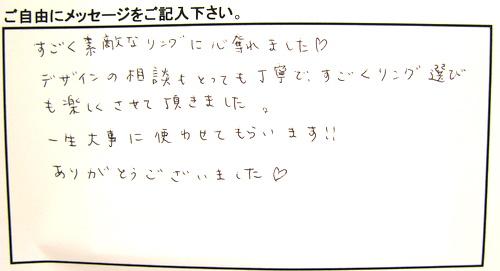 ご自由にメッセージをご記入下さい。
すごく素敵なリングに心奪れました♡
デザインの相談もとっても丁寧で、すごくリング選び
も楽しくさせて頂きました。
一生大事に使わせてもらいます!!
ありがとうございました♡